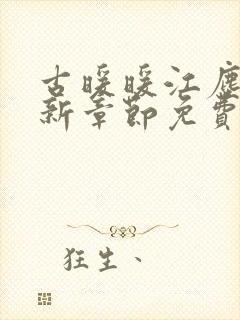 古暖暖江塵
新章節免費
狂生、